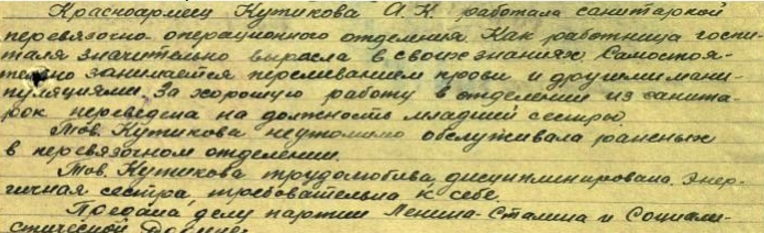 Красноармеец Кутикова А.К. работала санитаркой
перевязочно-операционного отделения. Как работница госпи-
таля значительно выросла в своих знаниях. Самостоя-
тельно занимается переливанием крови и другими мани-
пуляциями. За хорошую работу в отделении из санита-
рок переведена на должность младшей сестры.
Тов. Кутикова неутомимо обслуживала раненых
в перевязочном отделении.
Тов. Кутикова трудолюбива, дисциплинирована, энер-
гичная сестра, требовательна к себе.
Предана делу партии Ленина-Сталина и Социали-
стической Родине.